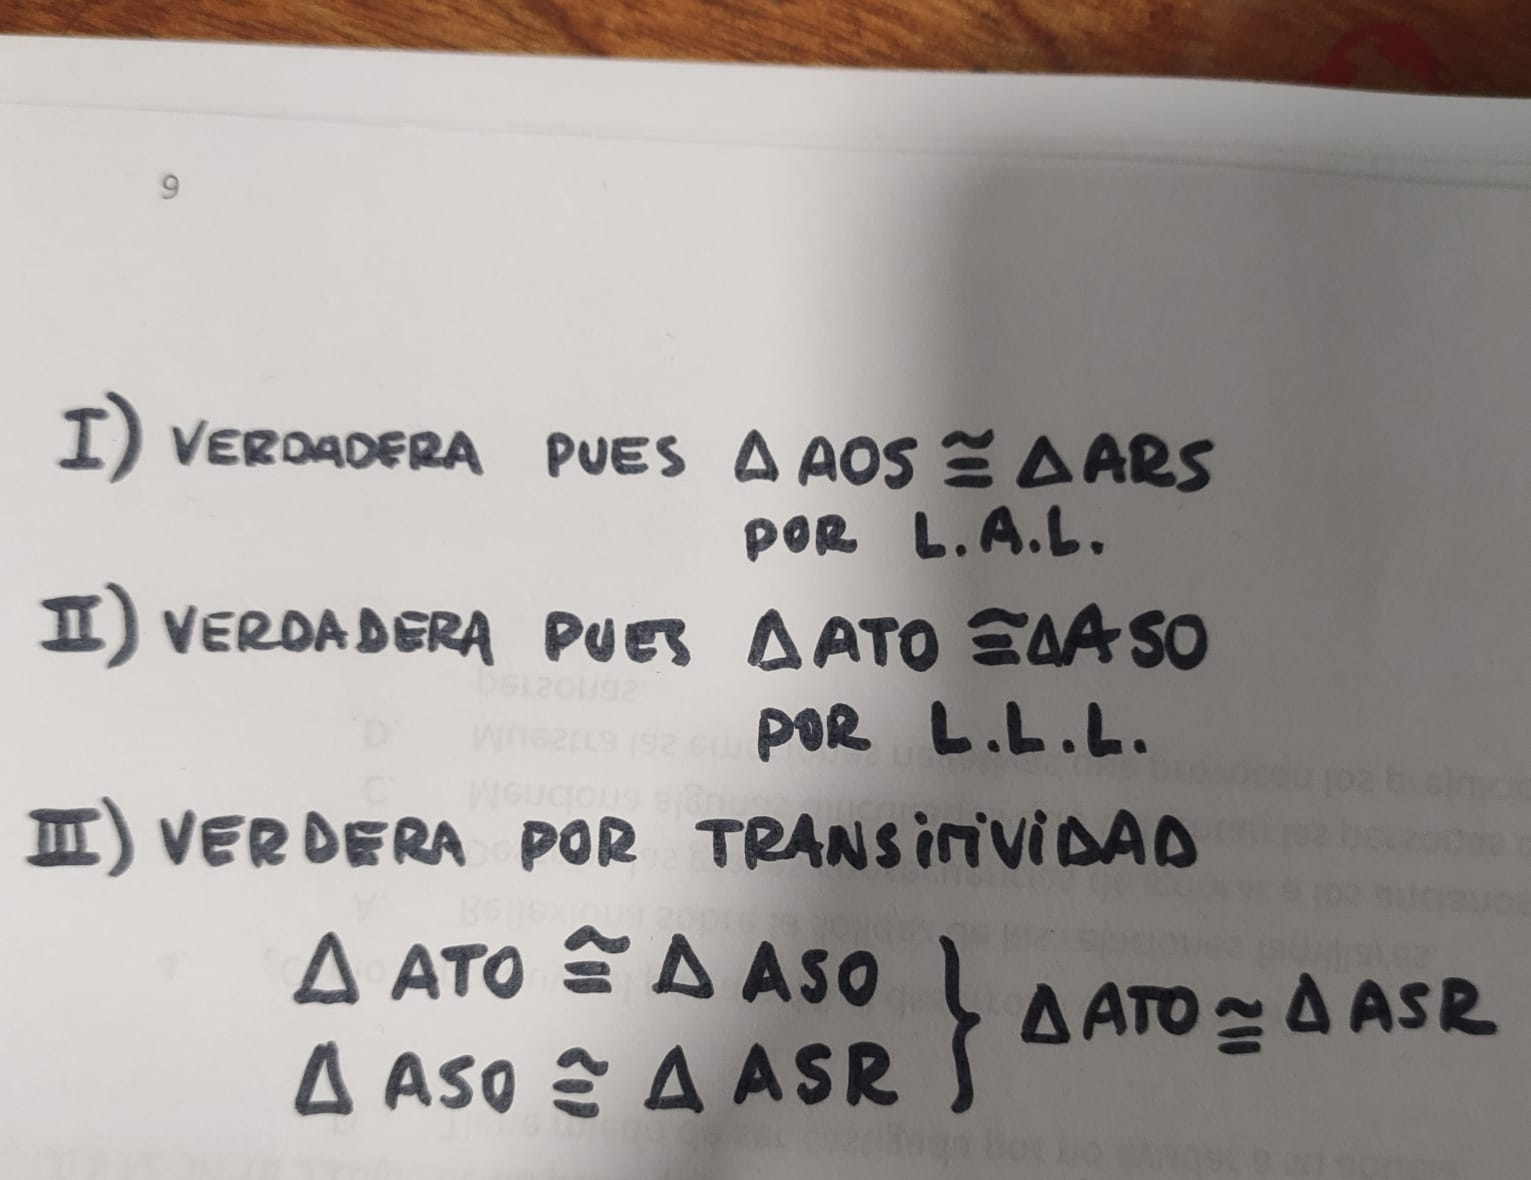 9
I) VERDADERA PUES Δ AOS ≅ Δ ARS
POR L.A.L.
II) VERDADERA PUES Δ ATO ≅ Δ ASO
POR L.L.L.
III) VERDERA POR TRANSiTiViDAD
Δ ATO ≅ Δ ASO
Δ ASO ≅ Δ ASR } Δ ATO ≅ Δ ASR